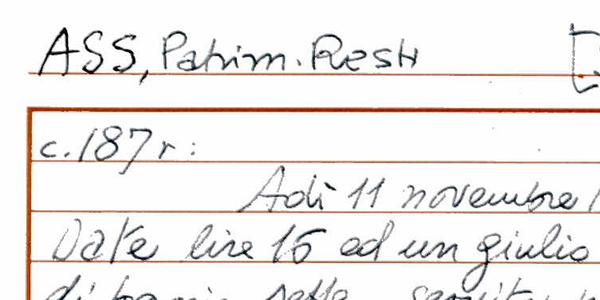 ASS, Patrim. Resti [
c. 187 r:
Adì 11 novembre 1
Date lire 15 ed un giulio
di